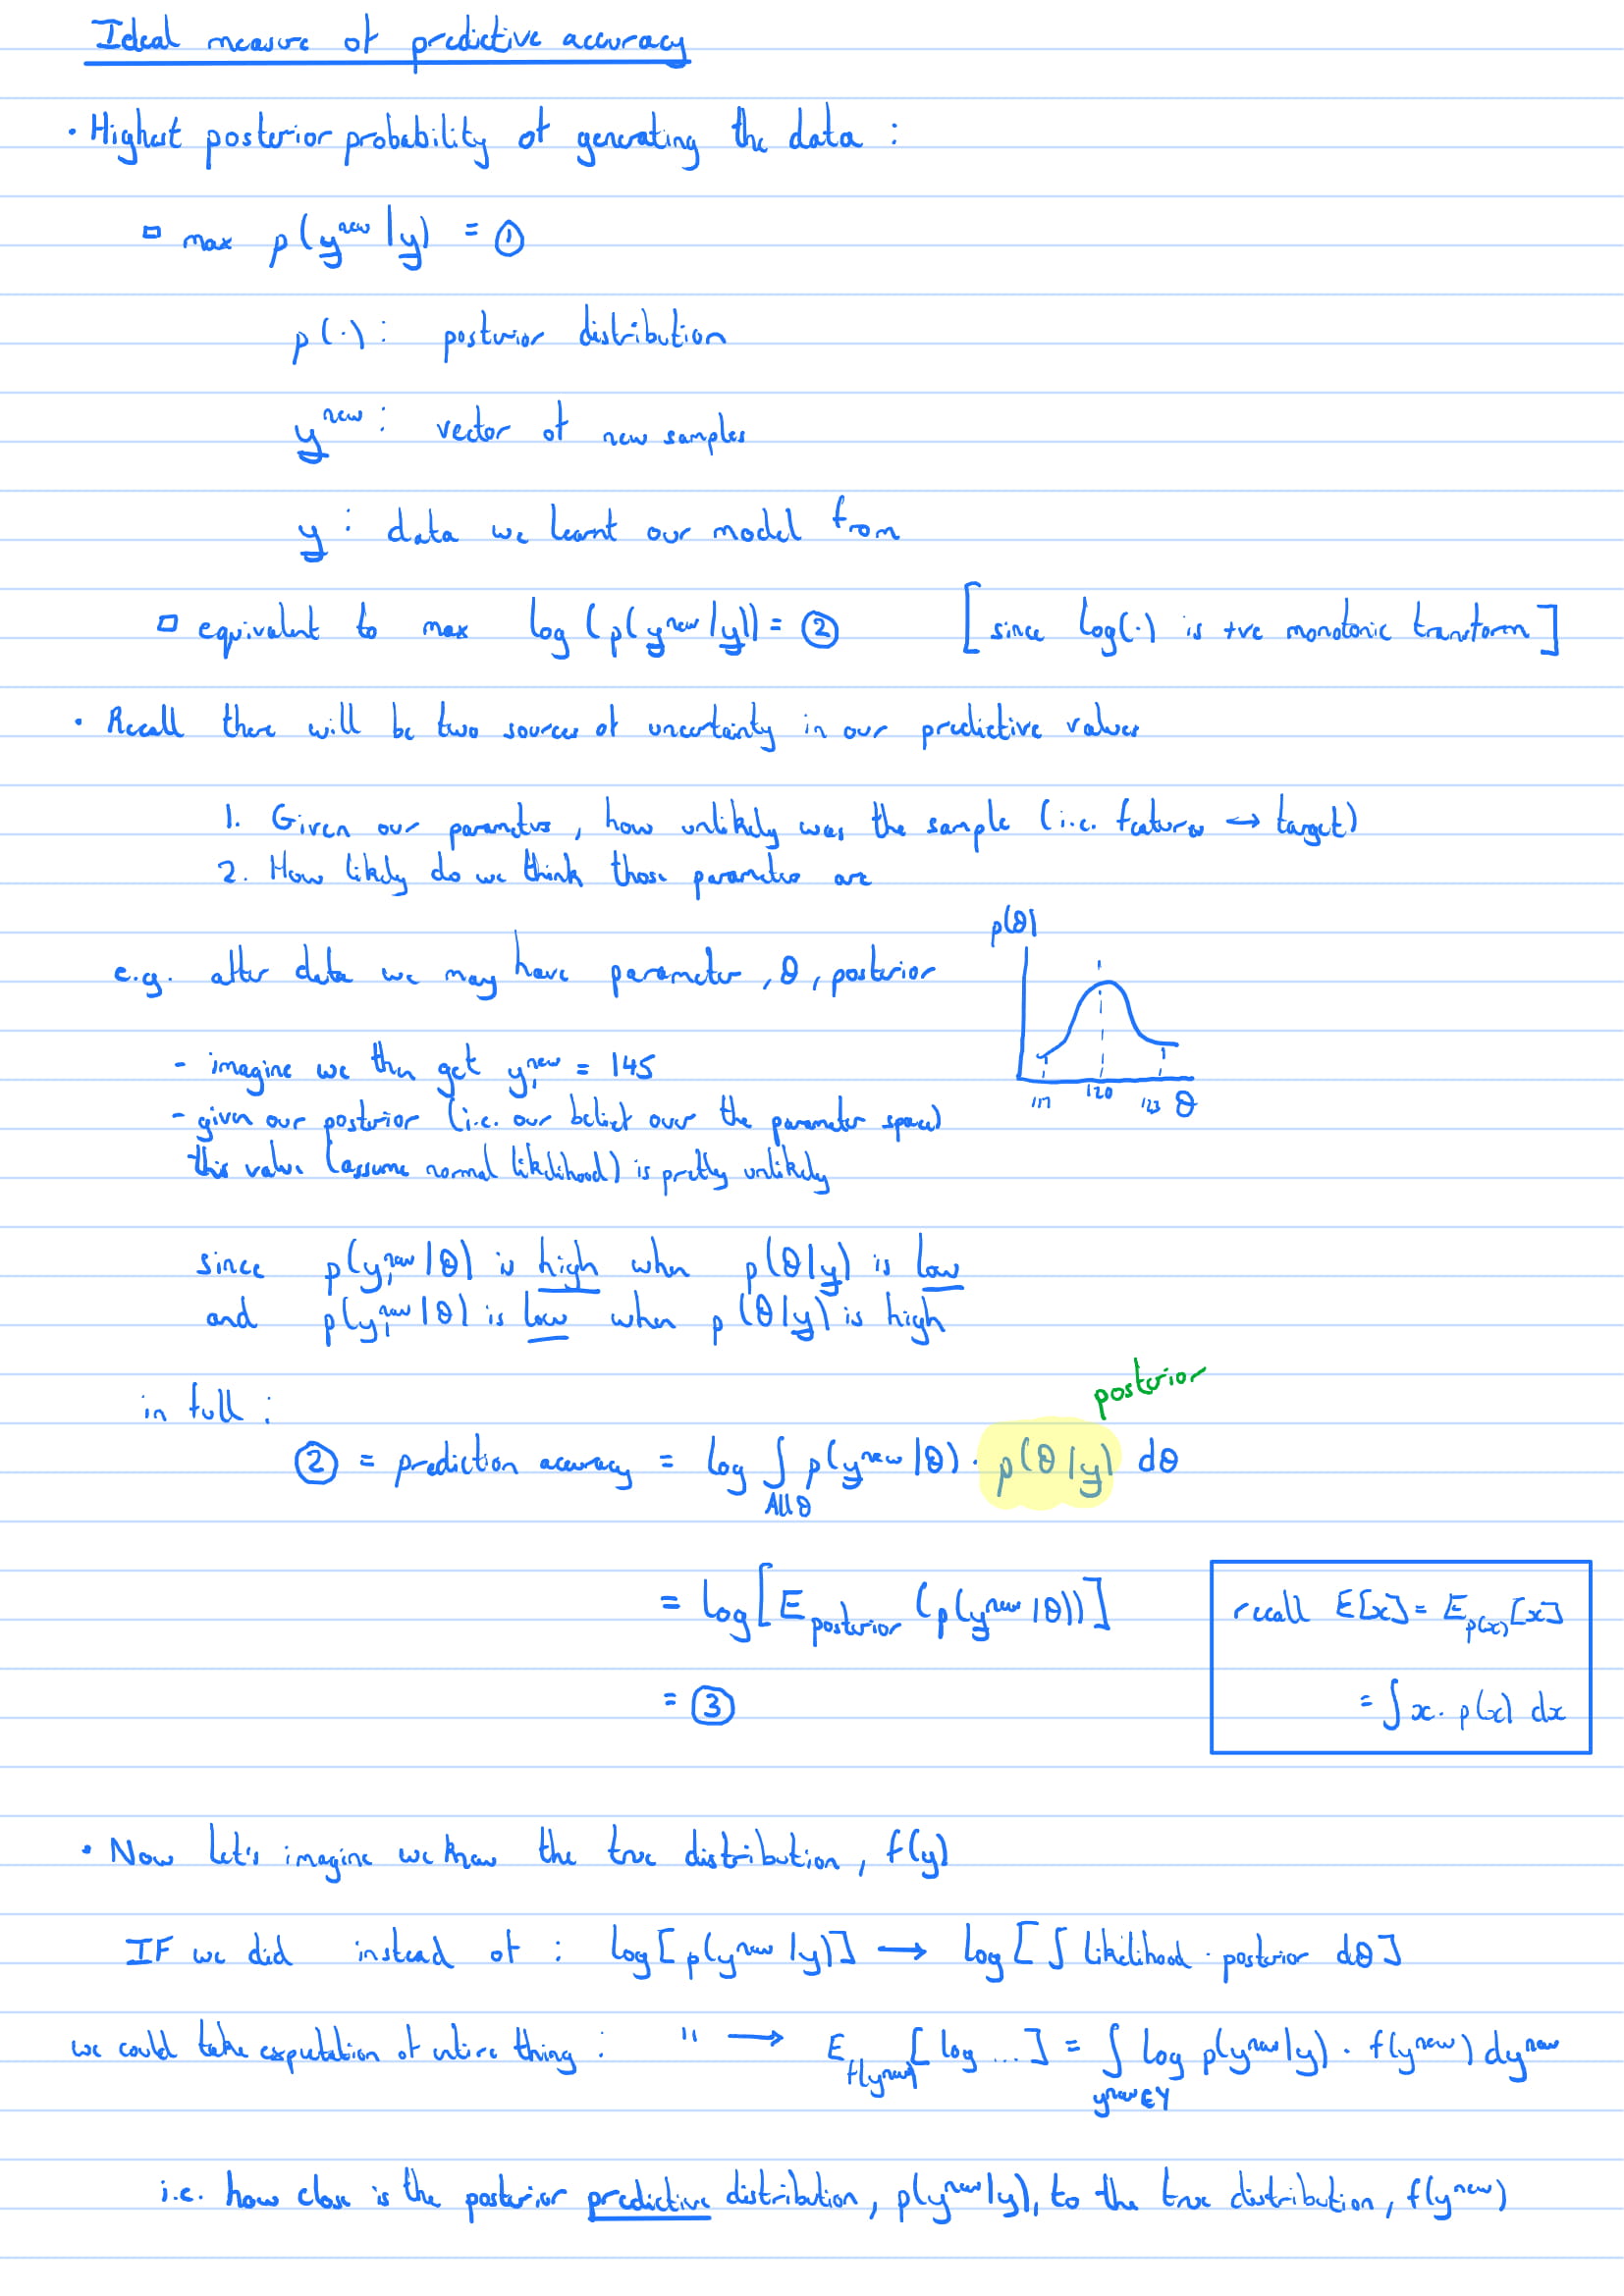 Ideal measure of predictive accuracy
• Highest posterior probability of generating the data :
▫ max p(y^new | y) = ①
p(·) : posterior distribution
y^new : vector of new samples
y : data we learnt our model from
▫ equivalent to max log(p(y^new | y)) = ② [since log(·) is +ve monotonic transform]
• Recall there will be two sources of uncertainty in our predictive values
1. Given our parameters, how unlikely was the sample (i.e. features ↔ target)
2. How likely do we think those parameters are
p(θ)
e.g. after data we may have parameter, θ, posterior
- imagine we then get y₁^new = 145
117 120 123 θ
- given our posterior (i.e. our belief over the parameter space)
this value (assume normal likelihood) is pretty unlikely
since p(y₁^new | θ) is high when p(θ | y) is low
and p(y₁^new | θ) is low when p(θ | y) is high
posterior
in full :
② = prediction accuracy = log ∫ p(y^new | θ) · p(θ | y) dθ
All θ
= log[E_posterior (p(y^new | θ))]
recall E[x] = E_p(x)[x]
= ③
= ∫ x · p(x) dx
• Now let's imagine we knew the true distribution, f(y)
IF we did instead of : log[p(y^new | y)] → log[∫ likelihood · posterior dθ]
we could take expectation of entire thing : " → E_f(y^new)[log ...] = ∫ log p(y^new | y) · f(y^new) dy^new
y^new ∈ Y
i.e. how close is the posterior predictive distribution, p(y^new | y), to the true distribution, f(y^new)